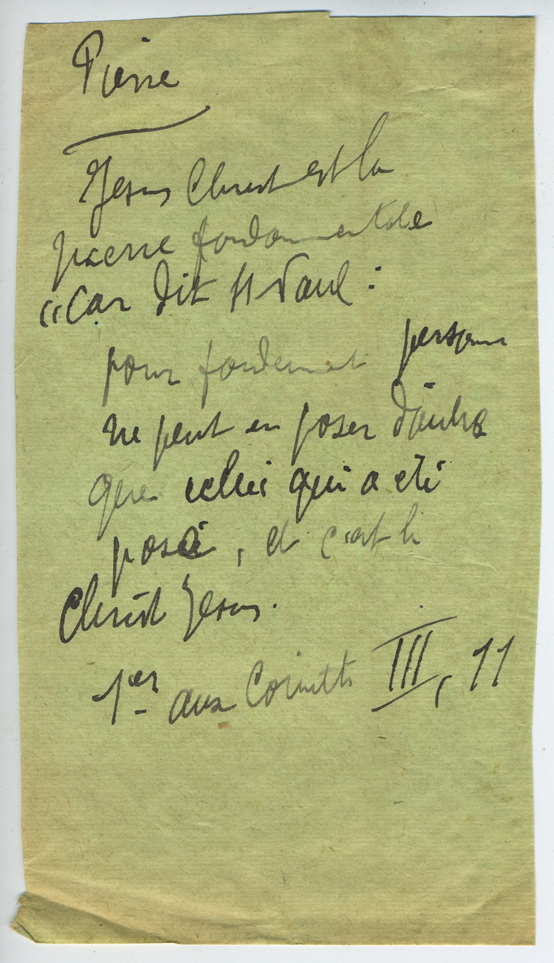 Pierre
Jesus Christ est la
pierre fondamentale
"Car dit St Paul :
pour fondement personne
ne peut en poser d'autre
que celui qui a été
posé, et c'est le
Christ Jesus.
1er aux Corinth III, 11